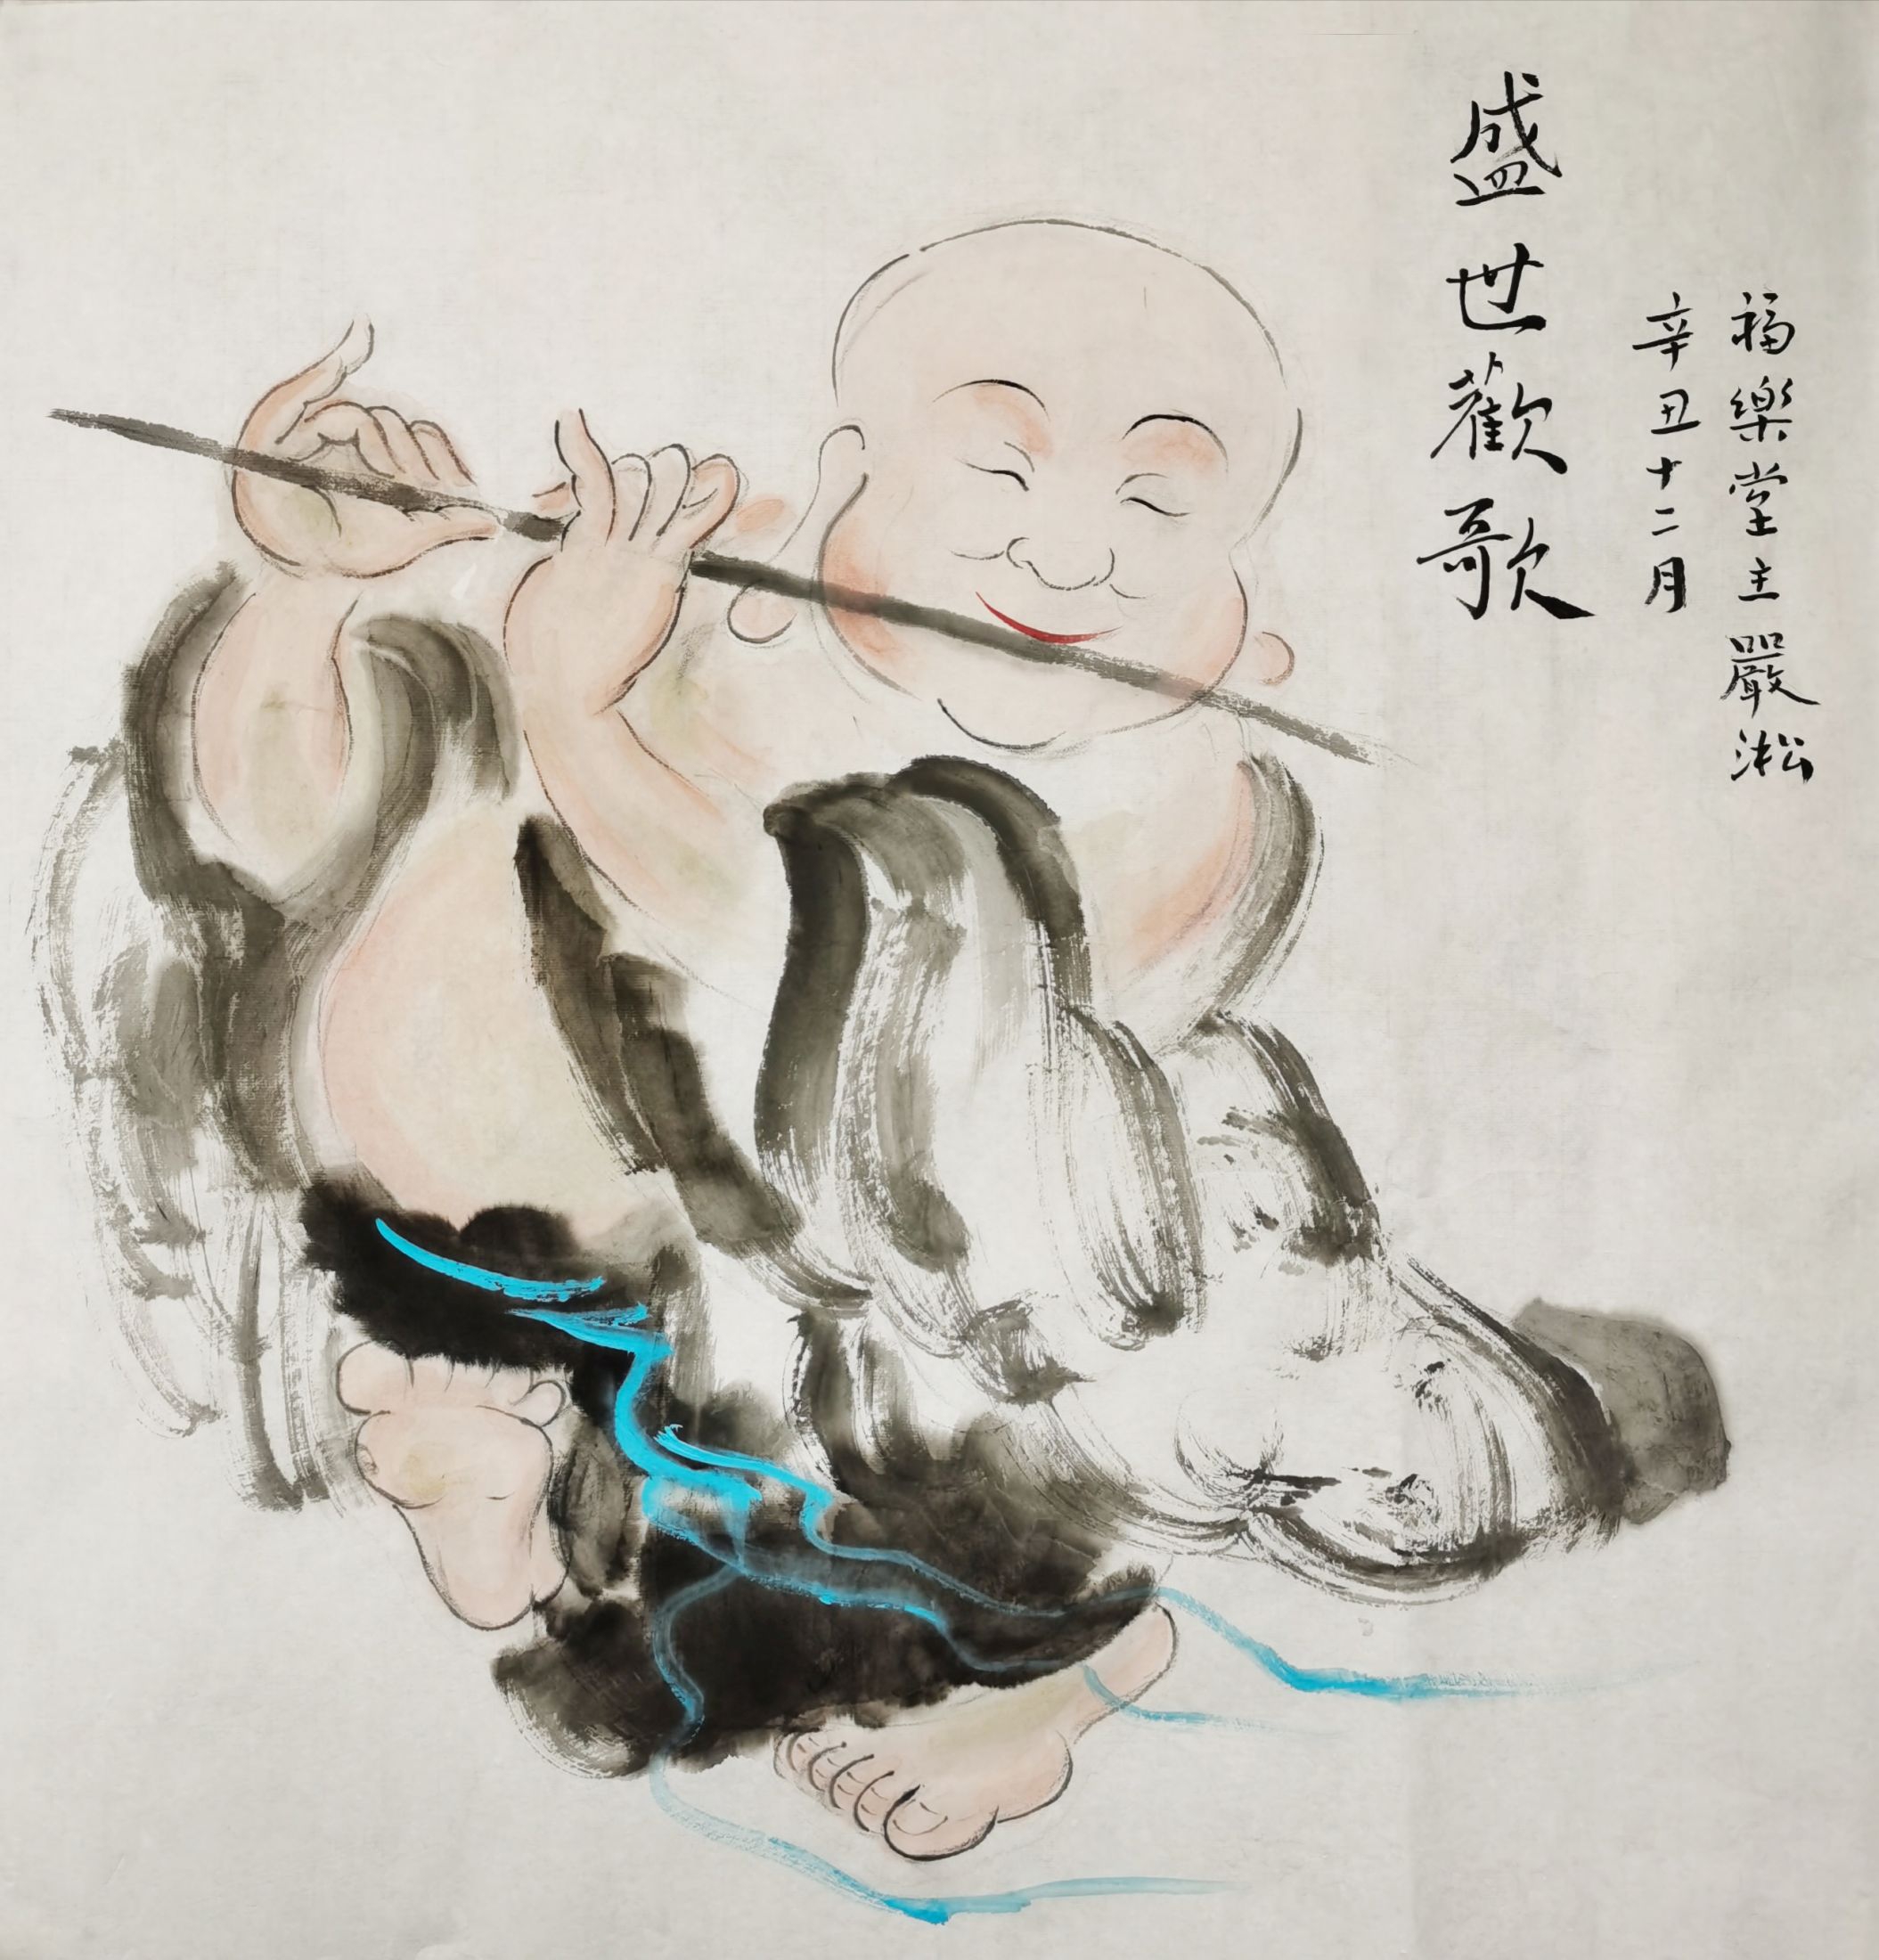 盛世歡歌
福樂堂主嚴淞
辛丑十二月